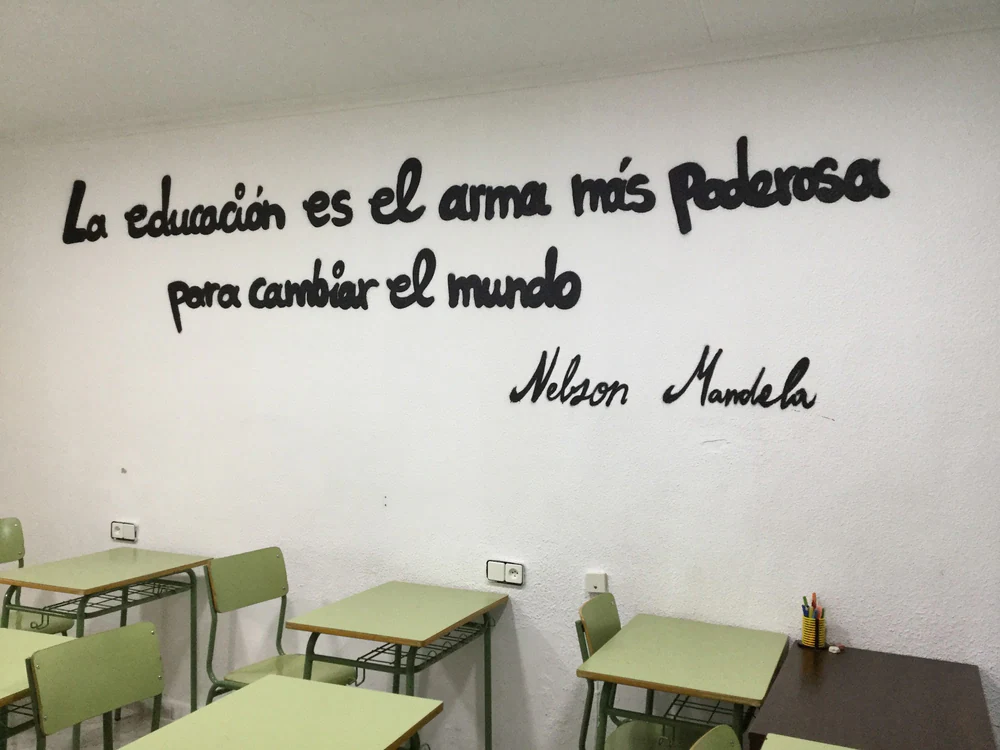 La educación es el arma más poderosa
para cambiar el mundo
Nelson Mandela